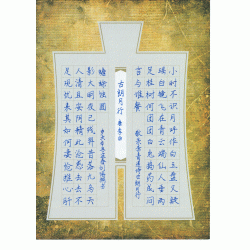 小时不识月呼作白玉盘又疑
瑶台镜飞在青云端仙人垂两
足桂树何团团白兔捣药成问
言与谁餐
古朗月行 唐李白
蟾蜍蚀圆
影大明夜已残羿昔落九乌天
人清且安阴精此沦惑去去不
足观忧来其如何凄怆摧心肝